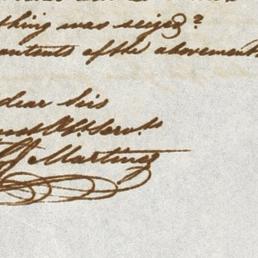 thing was seized?
contents of the abovement
dear Sir
Obt. Servt.
Martinez